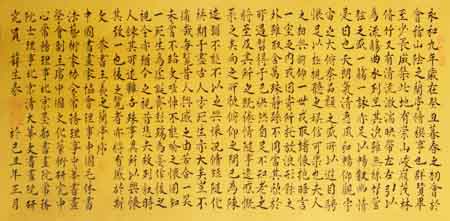 永和九年歲在癸丑暮春之初會於
會稽山陰之蘭亭脩禊事也群賢畢
至少長咸集此地有崇山峻領茂林
脩竹又有清流激湍映帶左右引以
為流觴曲水列坐其次雖無絲竹管
弦之盛一觴一詠亦足以暢敘幽情
是日也天朗氣清惠風和暢仰觀宇
宙之大俯察品類之盛所以遊目騁
懷足以極視聽之娛信可樂也夫人
之相與俯仰一世或取諸懷抱晤言
一室之內或因寄所託放浪形骸之
外雖取舍萬殊靜躁不同當其欣於
所遇暫得於己快然自足不知老之
將至及其所之既倦情隨事遷感慨
係之矣向之所欣俛仰之間已為陳
迹猶不能不以之興懷況脩短隨化
終期于盡古人云死生亦大矣豈不
痛哉每覽昔人興感之由若合一契
未嘗不臨文嗟悼不能喻之於懷固知
一死生為虛誕齊彭殤為妄作後之
視今亦猶今之視昔悲夫故列敘時
人錄其所述雖世殊事異所以興懷
其致一也後之覽者亦將有感於斯
文 恭書王羲之蘭亭序
中國書畫家協會理事中國毛体書
學會副主席中國文化藝術研究中
心常務理事中華書畫
院士理事北京書畫院常務
理事北京清大華文書畫院研
究員 薛生春 於己丑年三月